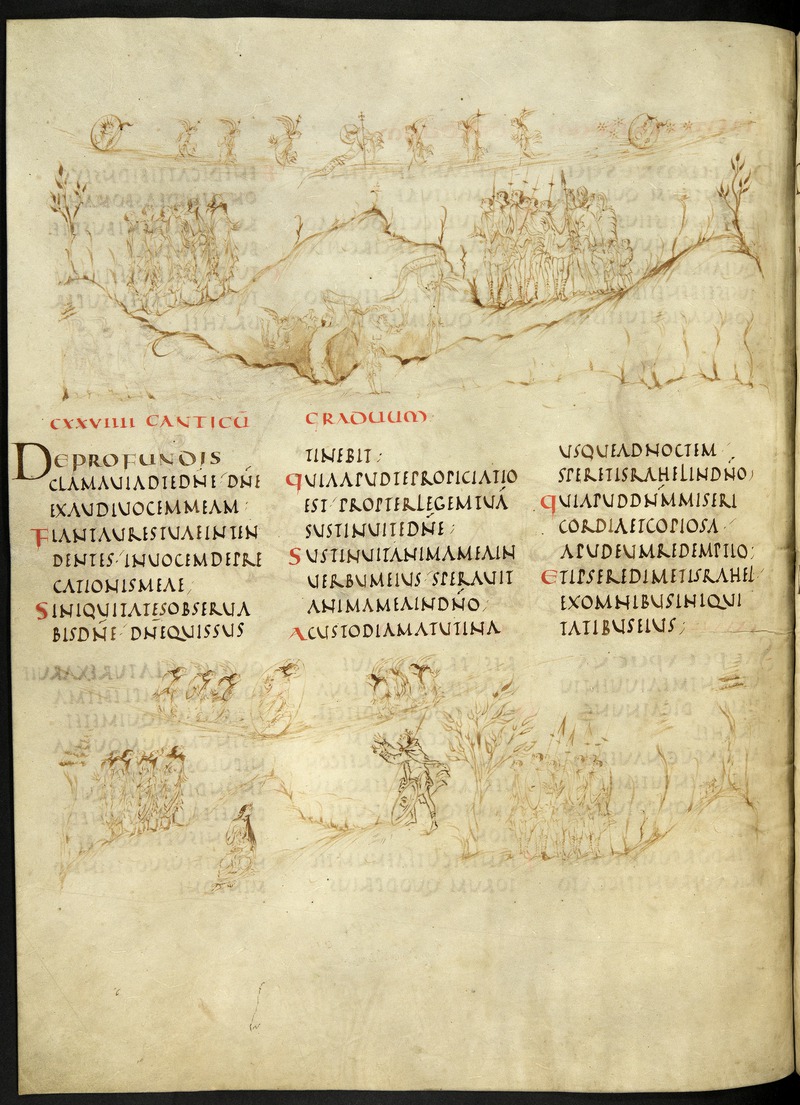 CXXVIIII CANTICŪ GRADUUM
DEPROFUNDIS
CLAMAUIADTEDNE DNE
EXAUDIUOCEMMEAM
FIANTAURESTUAEINTEN
DENTES INUOCEMDEPRE
CATIONISMEAE;
SINIQUITATESOBSERUA
BISDNE DNEQUISSUS
TINEBIT;
QUIAAPUDTEPROPICIATIO
EST PROPTERLEGEMTUĀ
SUSTINUITEDNE;
SUSTINUITANIMAMEAIN
UERBUMEIUS SPERAUIT
ANIMAMEAINDNO
ACUSTODIAMATUTINA
USQUEADNOCTEM
SPERETISRAHELINDNO;
QUIAPUDDNMMISERI
CORDIAETCOPIOSA
APUDEUMREDEMPTIO;
ETIPSEREDIMETISRAHEL
EXOMNIBUSINIQUI
TATIBUSEIUS;